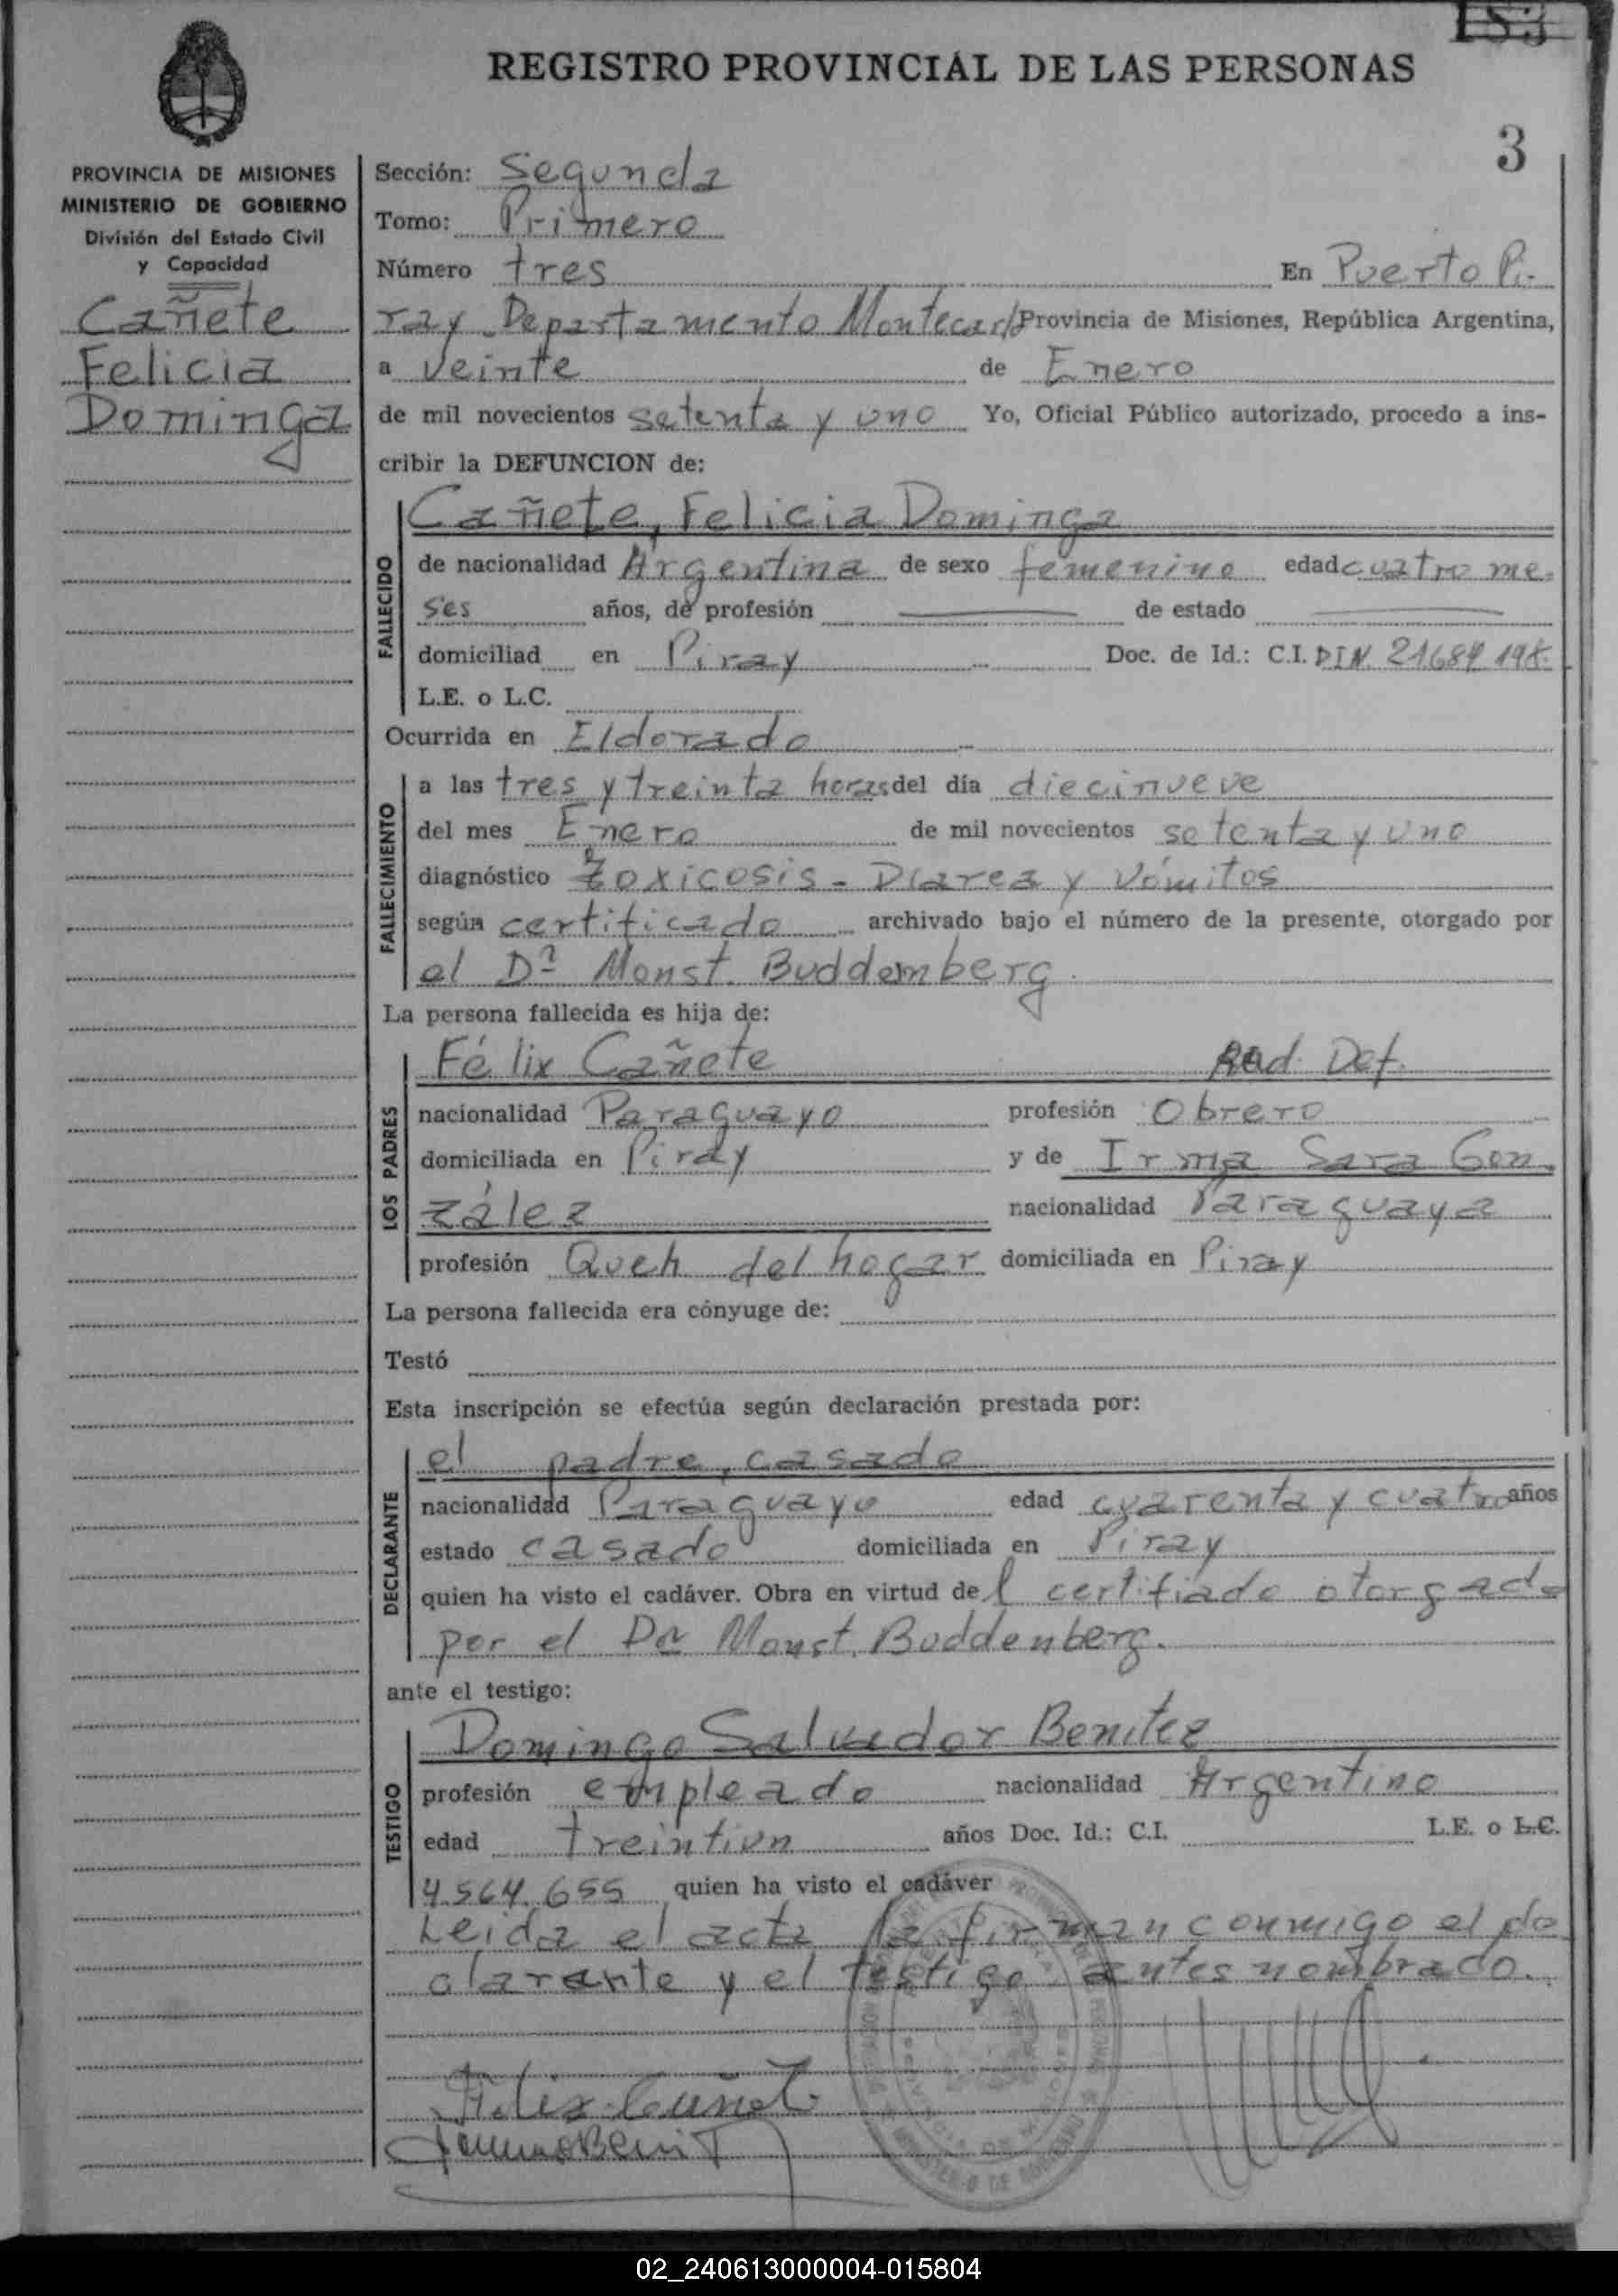 183
REGISTRO PROVINCIAL DE LAS PERSONAS
3
PROVINCIA DE MISIONES
MINISTERIO DE GOBIERNO
División del Estado Civil
y Capacidad
Cañete
Felicia
Dominga
Sección: Segunda
Tomo: Primero
Número tres En Puerto Pi-
ray Departamento Montecarlo Provincia de Misiones, República Argentina,
a veinte de Enero
de mil novecientos setenta y uno Yo, Oficial Público autorizado, procedo a ins-
cribir la DEFUNCION de:
FALLECIDO
Cañete, Felicia Dominga
de nacionalidad Argentina de sexo femenino edad cuatro me-
ses años, de profesión de estado
domiciliad en Piray Doc. de Id.: C.I. DIN
L.E. o L.C.
Ocurrida en Eldorado
FALLECIMIENTO
a las tres y treinta horas del día diecinueve
del mes Enero de mil novecientos setenta y uno
diagnóstico toxicosis - Diarea y Vómitos
según certificado archivado bajo el número de la presente, otorgado por
el Dr Monst. Buddemberg.
La persona fallecida es hija de:
LOS PADRES
Félix Cañete Rad. Def.
nacionalidad Paraguayo profesión Obrero
domiciliada en Piray y de Irma Sara Gon-
zález nacionalidad Paraguaya
profesión Queh del hogar domiciliada en Piray
La persona fallecida era cónyuge de:
Testó
Esta inscripción se efectúa según declaración prestada por:
DECLARANTE
el padre, casado
nacionalidad Paraguayo edad cuarenta y cuatro años
estado casado domiciliada en Piray
quien ha visto el cadáver. Obra en virtud del certifiado otorgado
por el Dr Monst. Buddenberg.
ante el testigo:
TESTIGO
Domingo Salvador Benitez
profesión empleado nacionalidad Argentino
edad treintiun años Doc. Id.: C.I. L.E. o L.C.
4.564.655 quien ha visto el cadáver
Leida el acta la firman conmigo el de
clarante y el testigo antes nombrado.
Felix Cañete